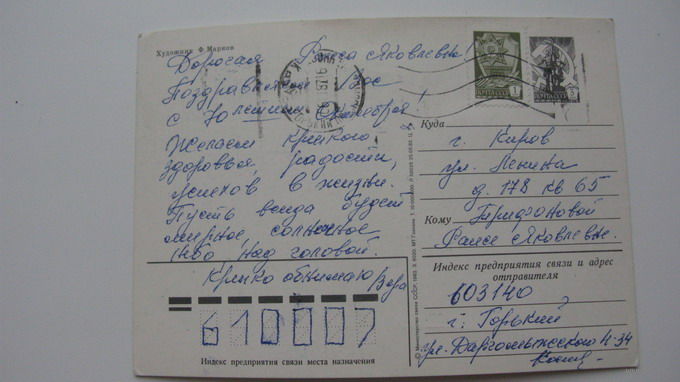 Художник Ф. Марков
Дорогая Раиса Яковлевна!
Поздравляем Вас
с Великим Октября!
Желаем крепкого
здоровья, радости,
успехов в жизни.
Пусть всегда будет
мирное солнечное
небо над головой.
Крепко обнимаю Вера
Куда г. Киров
ул. Ленина
д. 178 кв 65
Кому
Раисе Яковлевне.
Индекс предприятия связи и адрес
отправителя
603140
г. Горький,
ул. Даргомыжского 4-34
610007
Индекс предприятия связи места назначения